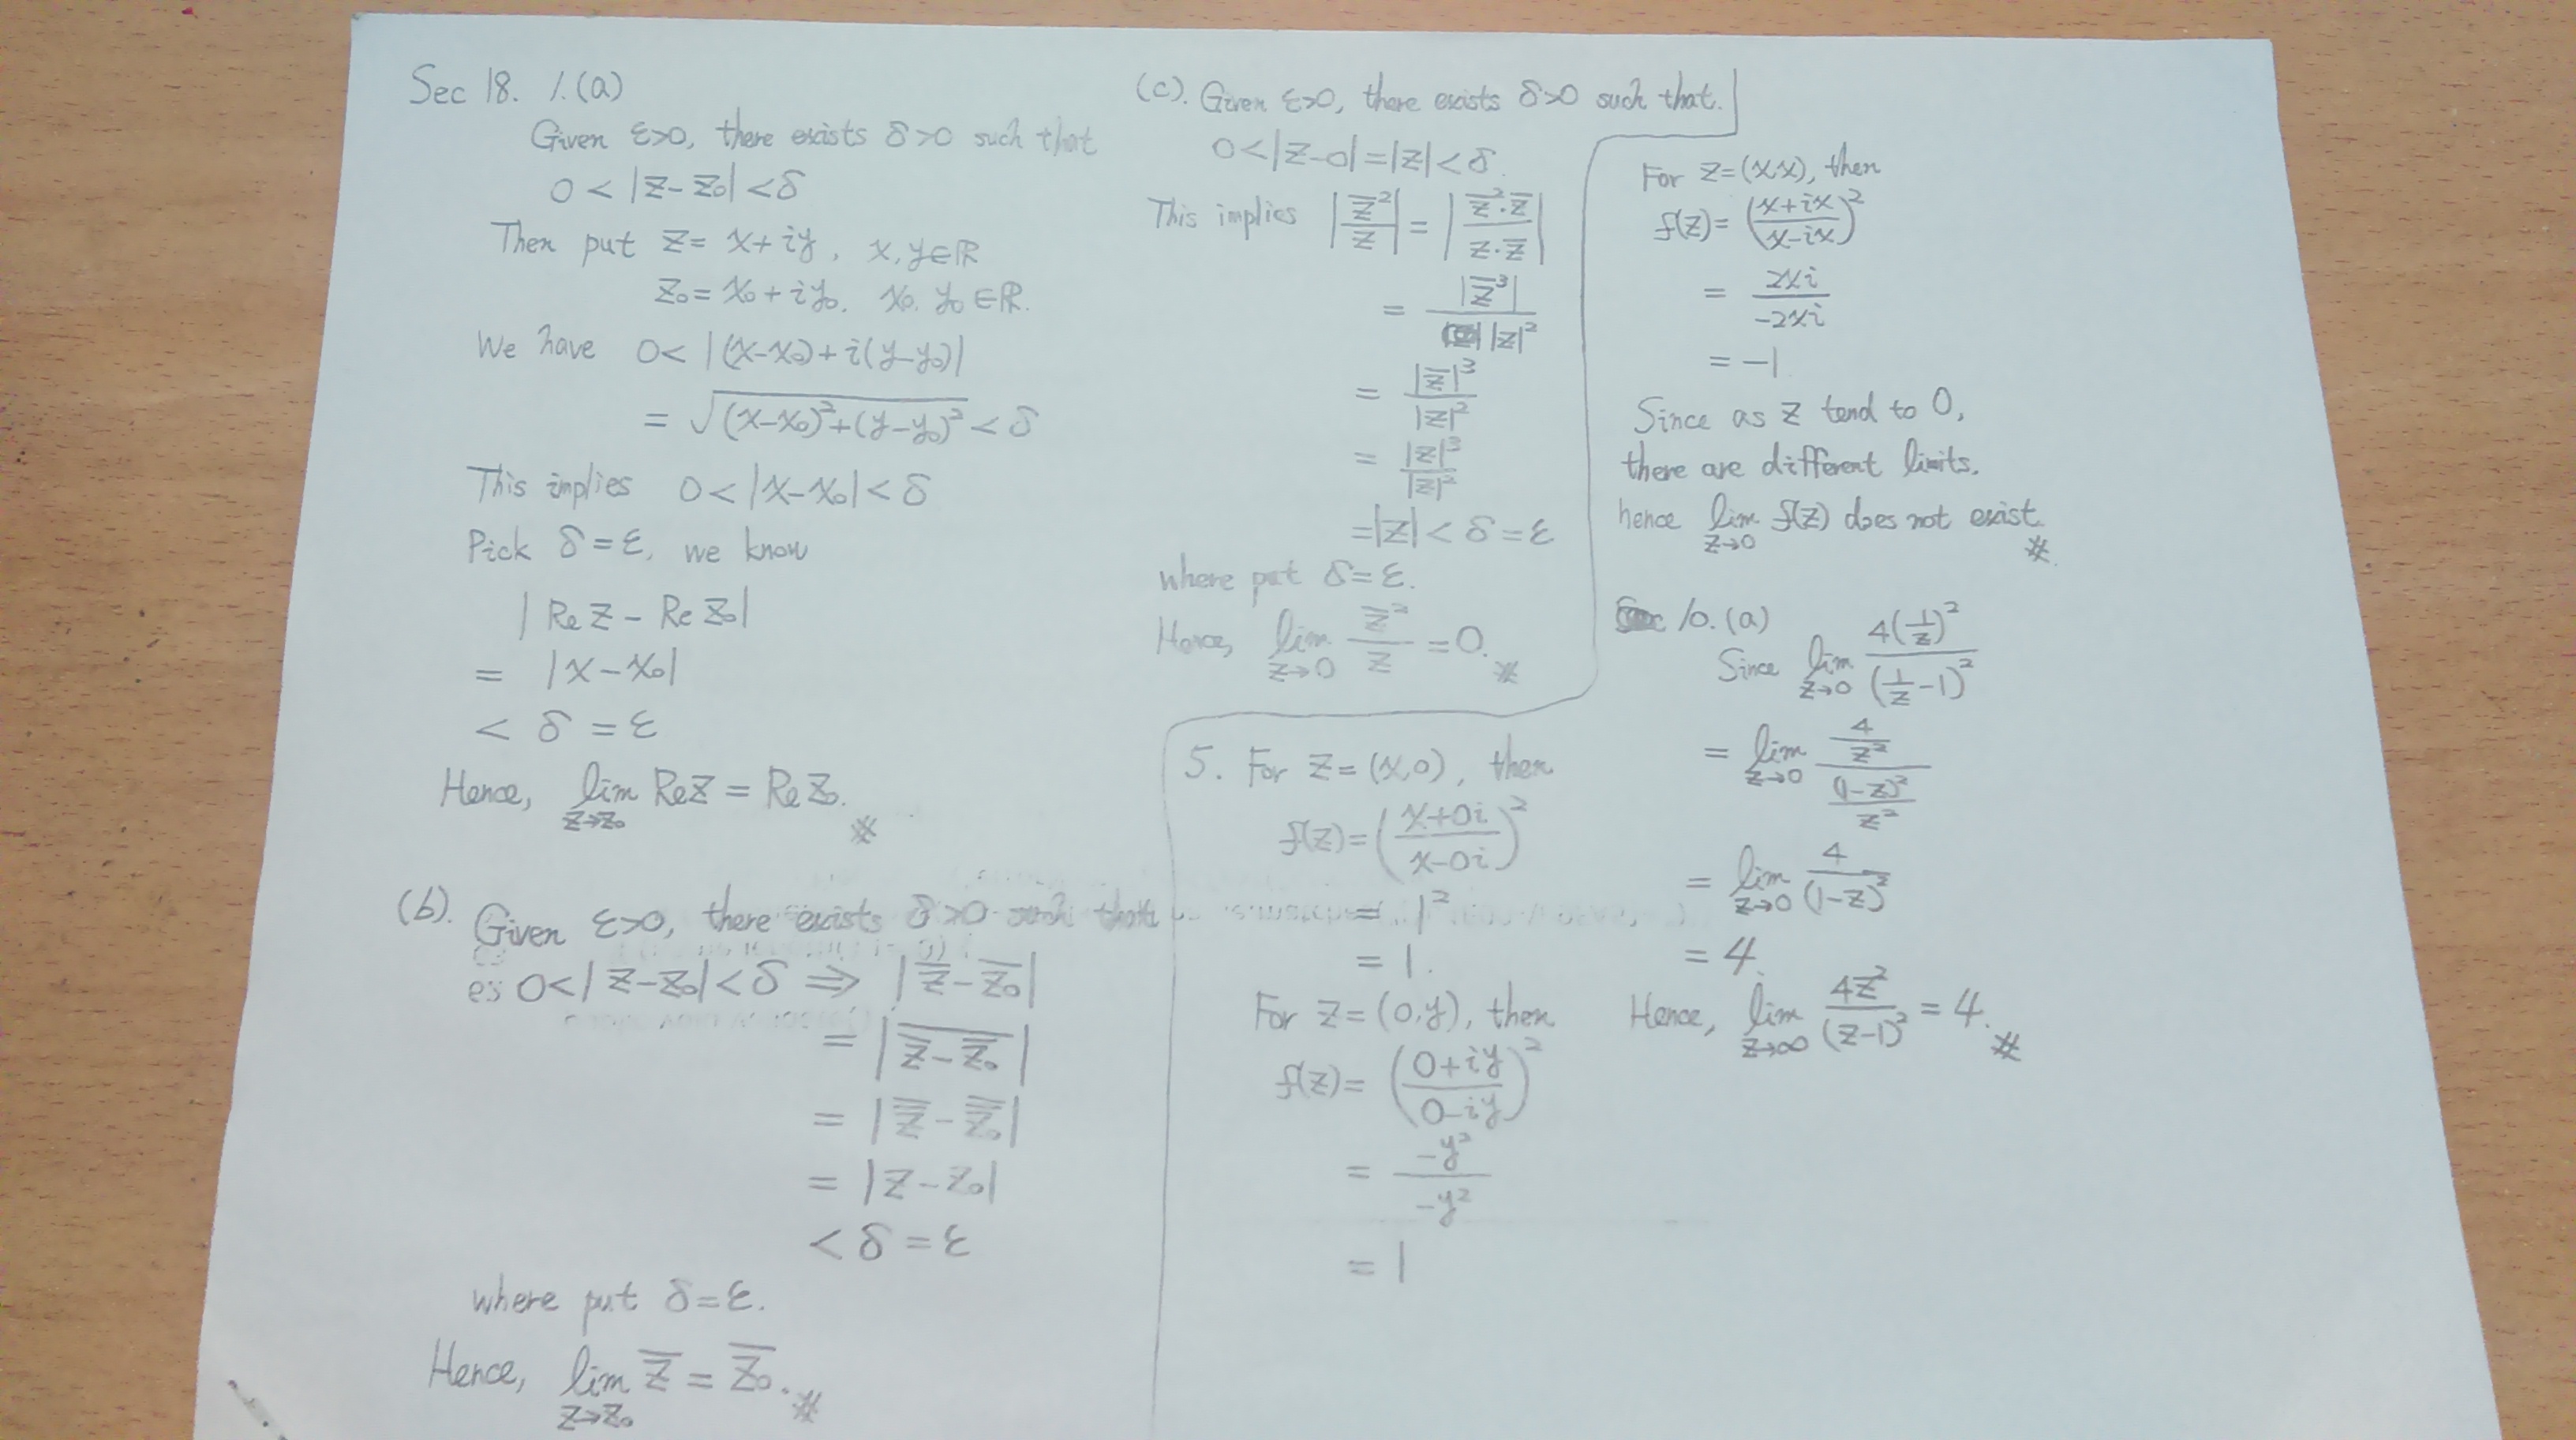 Sec 18. 1.(a)
Given ε>0, there exists δ>0 such that
0 < |z - z₀| < δ
Then put z = x + iy, x, y ∈ ℝ
z₀ = x₀ + iy₀. x₀. y₀ ∈ ℝ.
We have 0 < |(x-x₀) + i(y-y₀)|
= √((x-x₀)² + (y-y₀)²) < δ
This implies 0 < |x-x₀| < δ
Pick δ = ε, we know
|Re z - Re z₀|
= |x - x₀|
< δ = ε
Hence, lim_{z→z₀} Re z = Re z₀. ※
(b). Given ε>0, there exists δ>0 such that
0<|z-z₀|<δ ⇒ |z̅ - z̅₀|
= |\overline{z̅ - z̅₀}|
= |z̿ - z̿₀|
= |z - z₀|
< δ = ε
where put δ=ε.
Hence, lim_{z→z₀} z̅ = z̅₀. ※
(c). Given ε>0, there exists δ>0 such that.
0<|z-0|=|z|<δ.
This implies |z̅²/z| = |(z̅²·z̅)/(z·z̅)|
= |z̅³|/|z|²
= |z̅|³/|z|²
= |z|³/|z|²
= |z| < δ = ε
where put δ=ε.
Hence, lim_{z→0} z̅²/z = 0. ※
5. For z = (x,0), then
f(z) = ((x+0i)/(x-0i))²
= 1²
= 1.
For z = (0,y), then
f(z) = ((0+iy)/(0-iy))²
= -y²/-y²
= 1
For z=(x,x), then
f(z) = ((x+ix)/(x-ix))²
= 2xi/-2xi
= -1
Since as z tend to 0,
there are different limits.
hence lim_{z→0} f(z) does not exist. ※
10. (a)
Since lim_{z→0} 4(1/z)²/(1/z - 1)²
= lim_{z→0} (4/z²)/((1-z)²/z²)
= lim_{z→0} 4/(1-z)²
= 4.
Hence, lim_{z→∞} 4z²/(z-1)² = 4. ※